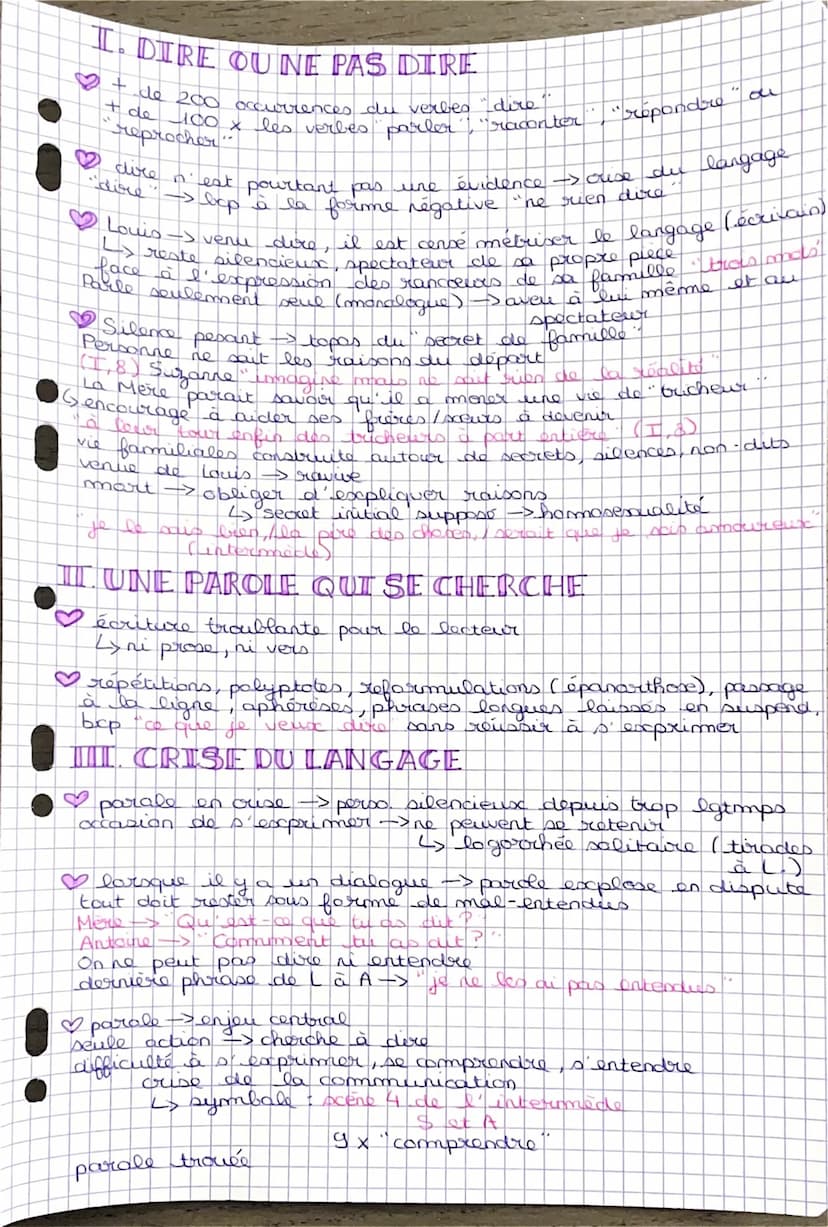 I. DIRE OU NE PAS DIRE
+ de 200 occurrences du verbes "dire"
+ de 100 x les verbes "parler", "raconter", "répondre" ou
"reprocher"
dire n'est pourtant pas une évidence → crise du langage
"dire" → bcp à la forme négative "ne rien dire"
Louis → venu dire, il est censé métriser le langage (écrivain)
↳ reste silencieux, spectateur de sa propre pièce
face à l'expression des rancoeurs de sa famille "trois mots"
Parle seulement seul (monologue) → aveu à lui même et au
spectateur
Silence pesant → topos du "secret de famille"
Personne ne sait les raisons du départ
(I,8) Suzanne "imagine mais ne sait rien de la réalité"
La Mère parait savoir qu'il a mener une vie de "tricheur"
↳ encourage à aider ses frères/soeurs à devenir
"à leur tour enfin des tricheurs à part entière" (I,8)
vie familiales construite autour de secrets, silences, non-dits
venue de Louis → ravive
mort → obliger d'expliquer raisons
↳ secret initial supposé → homosexualité
"je le sais bien,/la pire des choses,/serait que je sois amoureux"
(intermède)
II. UNE PAROLE QUI SE CHERCHE
écriture troublante pour le lecteur
↳ ni prose, ni vers
répétitions, polyptotes, reformulations (épanorthose), passage
à la ligne, aphérèses, phrases longues laissés en suspend,
bcp "ce que je veux dire" sans réussir à s'exprimer
III. CRISE DU LANGAGE
parole en crise → perso. silencieux depuis trop lgtmps
occasion de s'exprimer → ne peuvent se retenir
↳ logorrhée solitaire (tirades
à L.)
lorsque il y a un dialogue → parole explose en dispute
tout doit rester sous forme de mal-entendus
Mère → "Qu'est-ce que tu as dit?"
Antoine → "Comment tu as dit?"
On ne peut pas dire ni entendre
dernière phrase de L à A → "je ne les ai pas entendues"
parole → enjeu central
seule action → cherche à dire
difficulté à s'exprimer, se comprendre, s'entendre
crise de la communication
↳ symbole : scène 4 de l'intermède
S et A
9 x "comprendre"
parole trouée